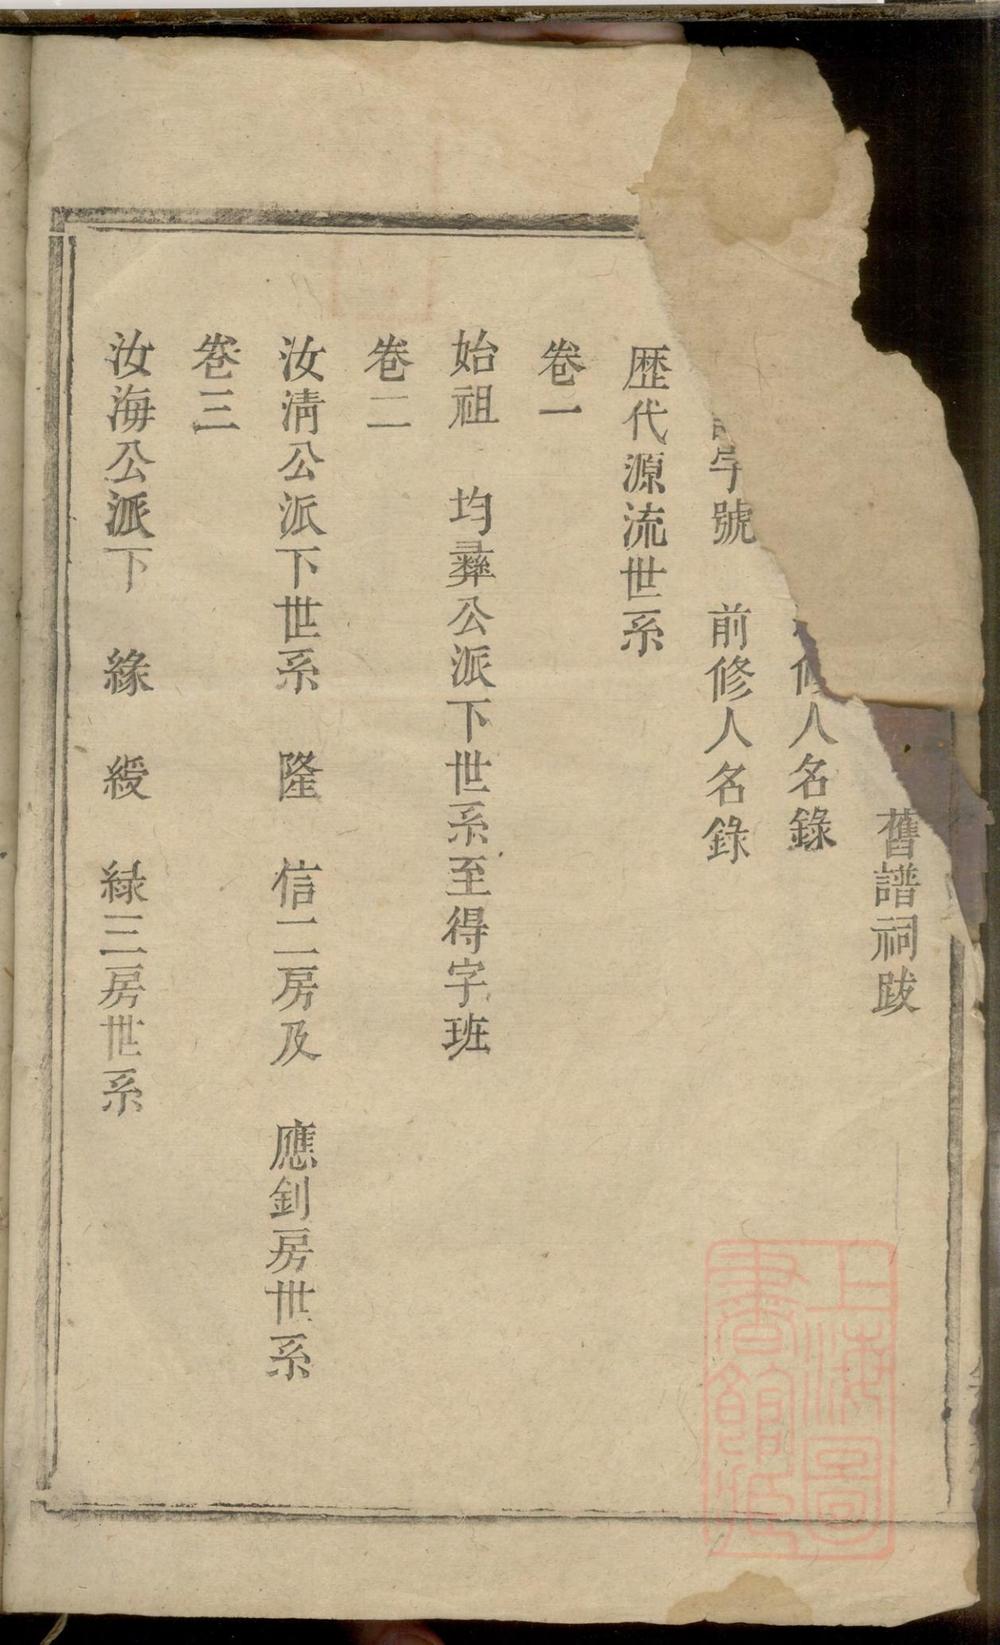 舊譜祠跋
修人名錄
字號　前修人名錄
歷代源流世系
卷一
始祖　均彝公派下世系至得字班
卷二
汝淸公派下世系　隆　信二房及　應釗房世系
卷三
汝海公派下　緣　綬　綠三房世系
上海圖
書館藏